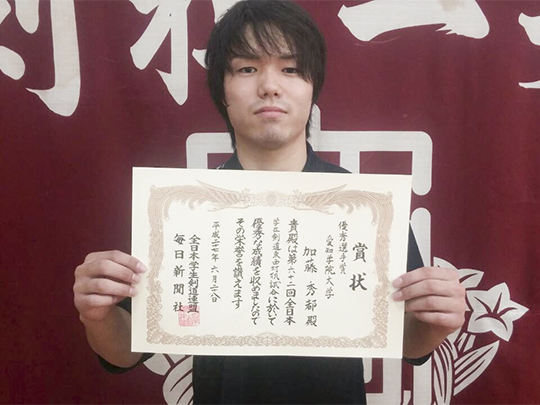 賞状
優秀選手賞
愛知学院大学
加藤秀都殿
貴殿は第六十二回全日本
学生剣道東西対抗試合に於いて
優秀な成績を収めましたので
その栄誉を讃えます
平成二十七年六月二十八日
全日本学生剣道連盟
毎日新聞社